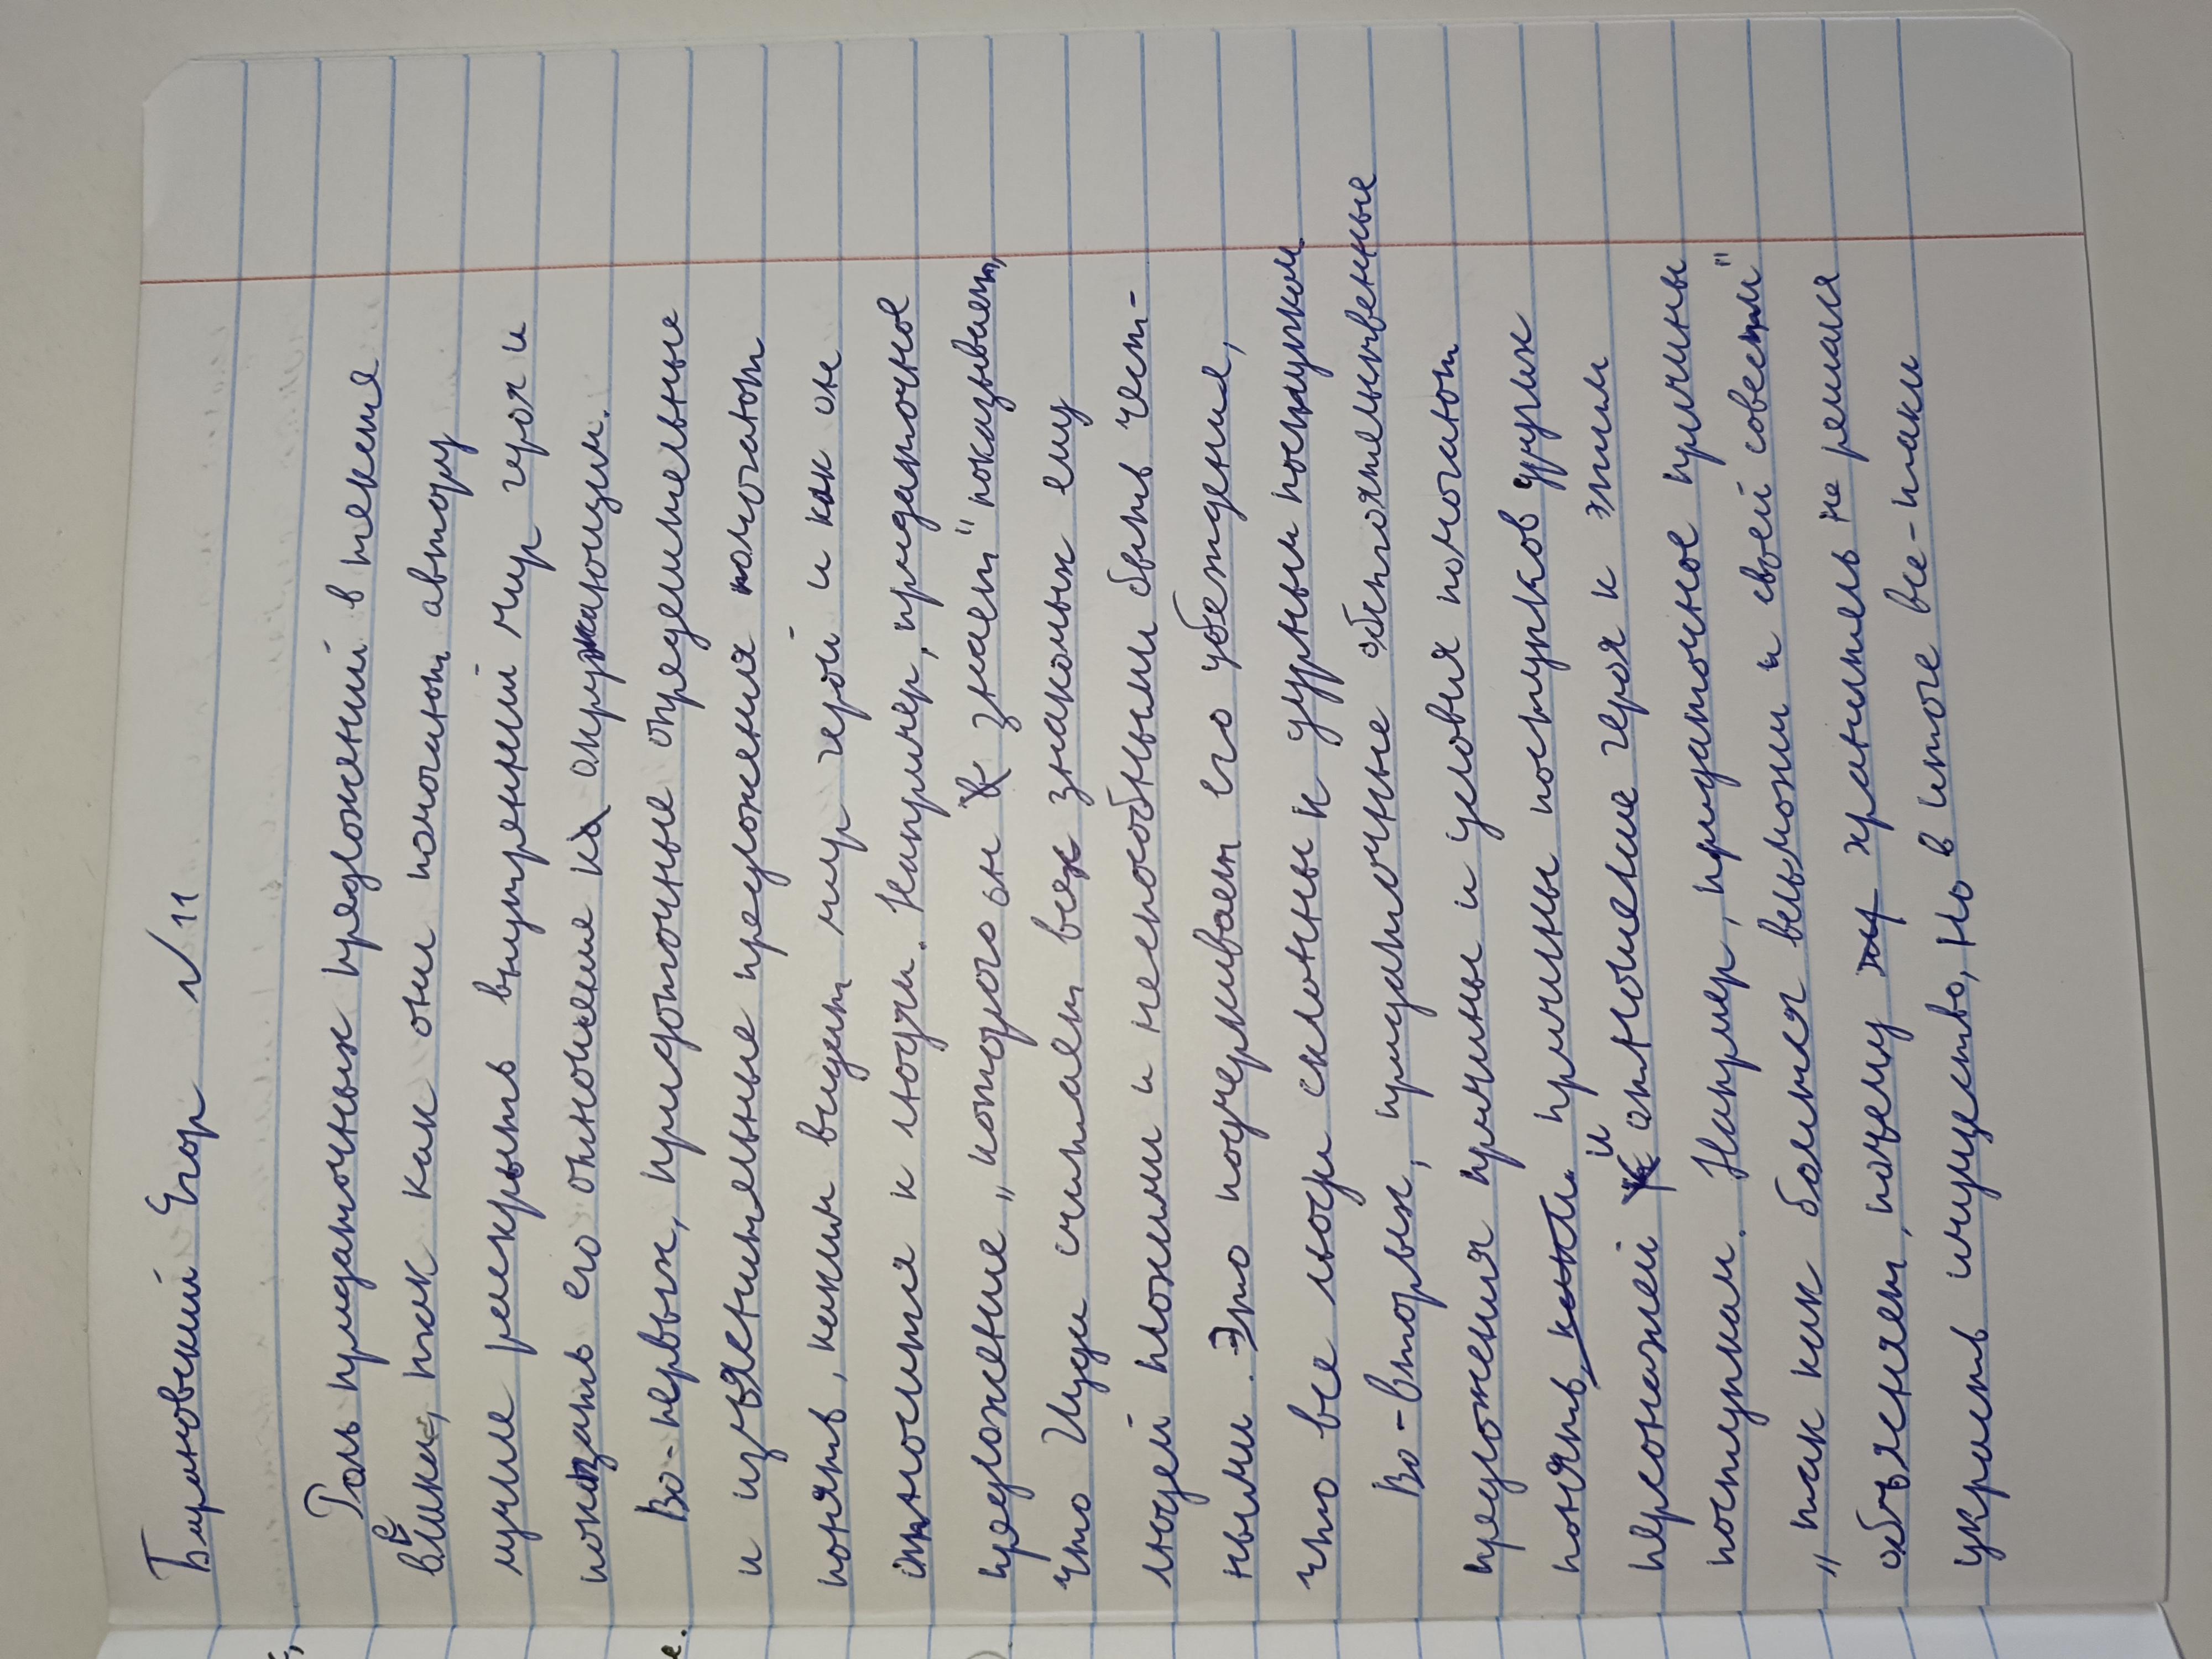 Барановский Егор √11
Роль придаточных предложений в тексте
велика, так как они помогают автору
лучше раскрыть внутренний мир героя и
показать его отношение к окружающим.
Во-первых, придаточные определительные
и изъяснительные предложения помогают
понять, каким видит мир герой и как он
относится к людям. Например, придаточное
предложение „которого он знает" показывает,
что Иуда считает всех знакомых ему
людей плохими и неспособными быть чест-
ными. Это подчеркивает его убеждение,
что все люди склонны к дурным поступкам.
Во-вторых, придаточные обстоятельственные
предложения причины и условия помогают
понять причины поступков других
персонажей и отношение героя к этим
поступкам. Например, придаточное причины
„так как боится вельможи и своей совести"
объясняет, почему хранитель не решался
украсть имущество, но в итоге все-таки